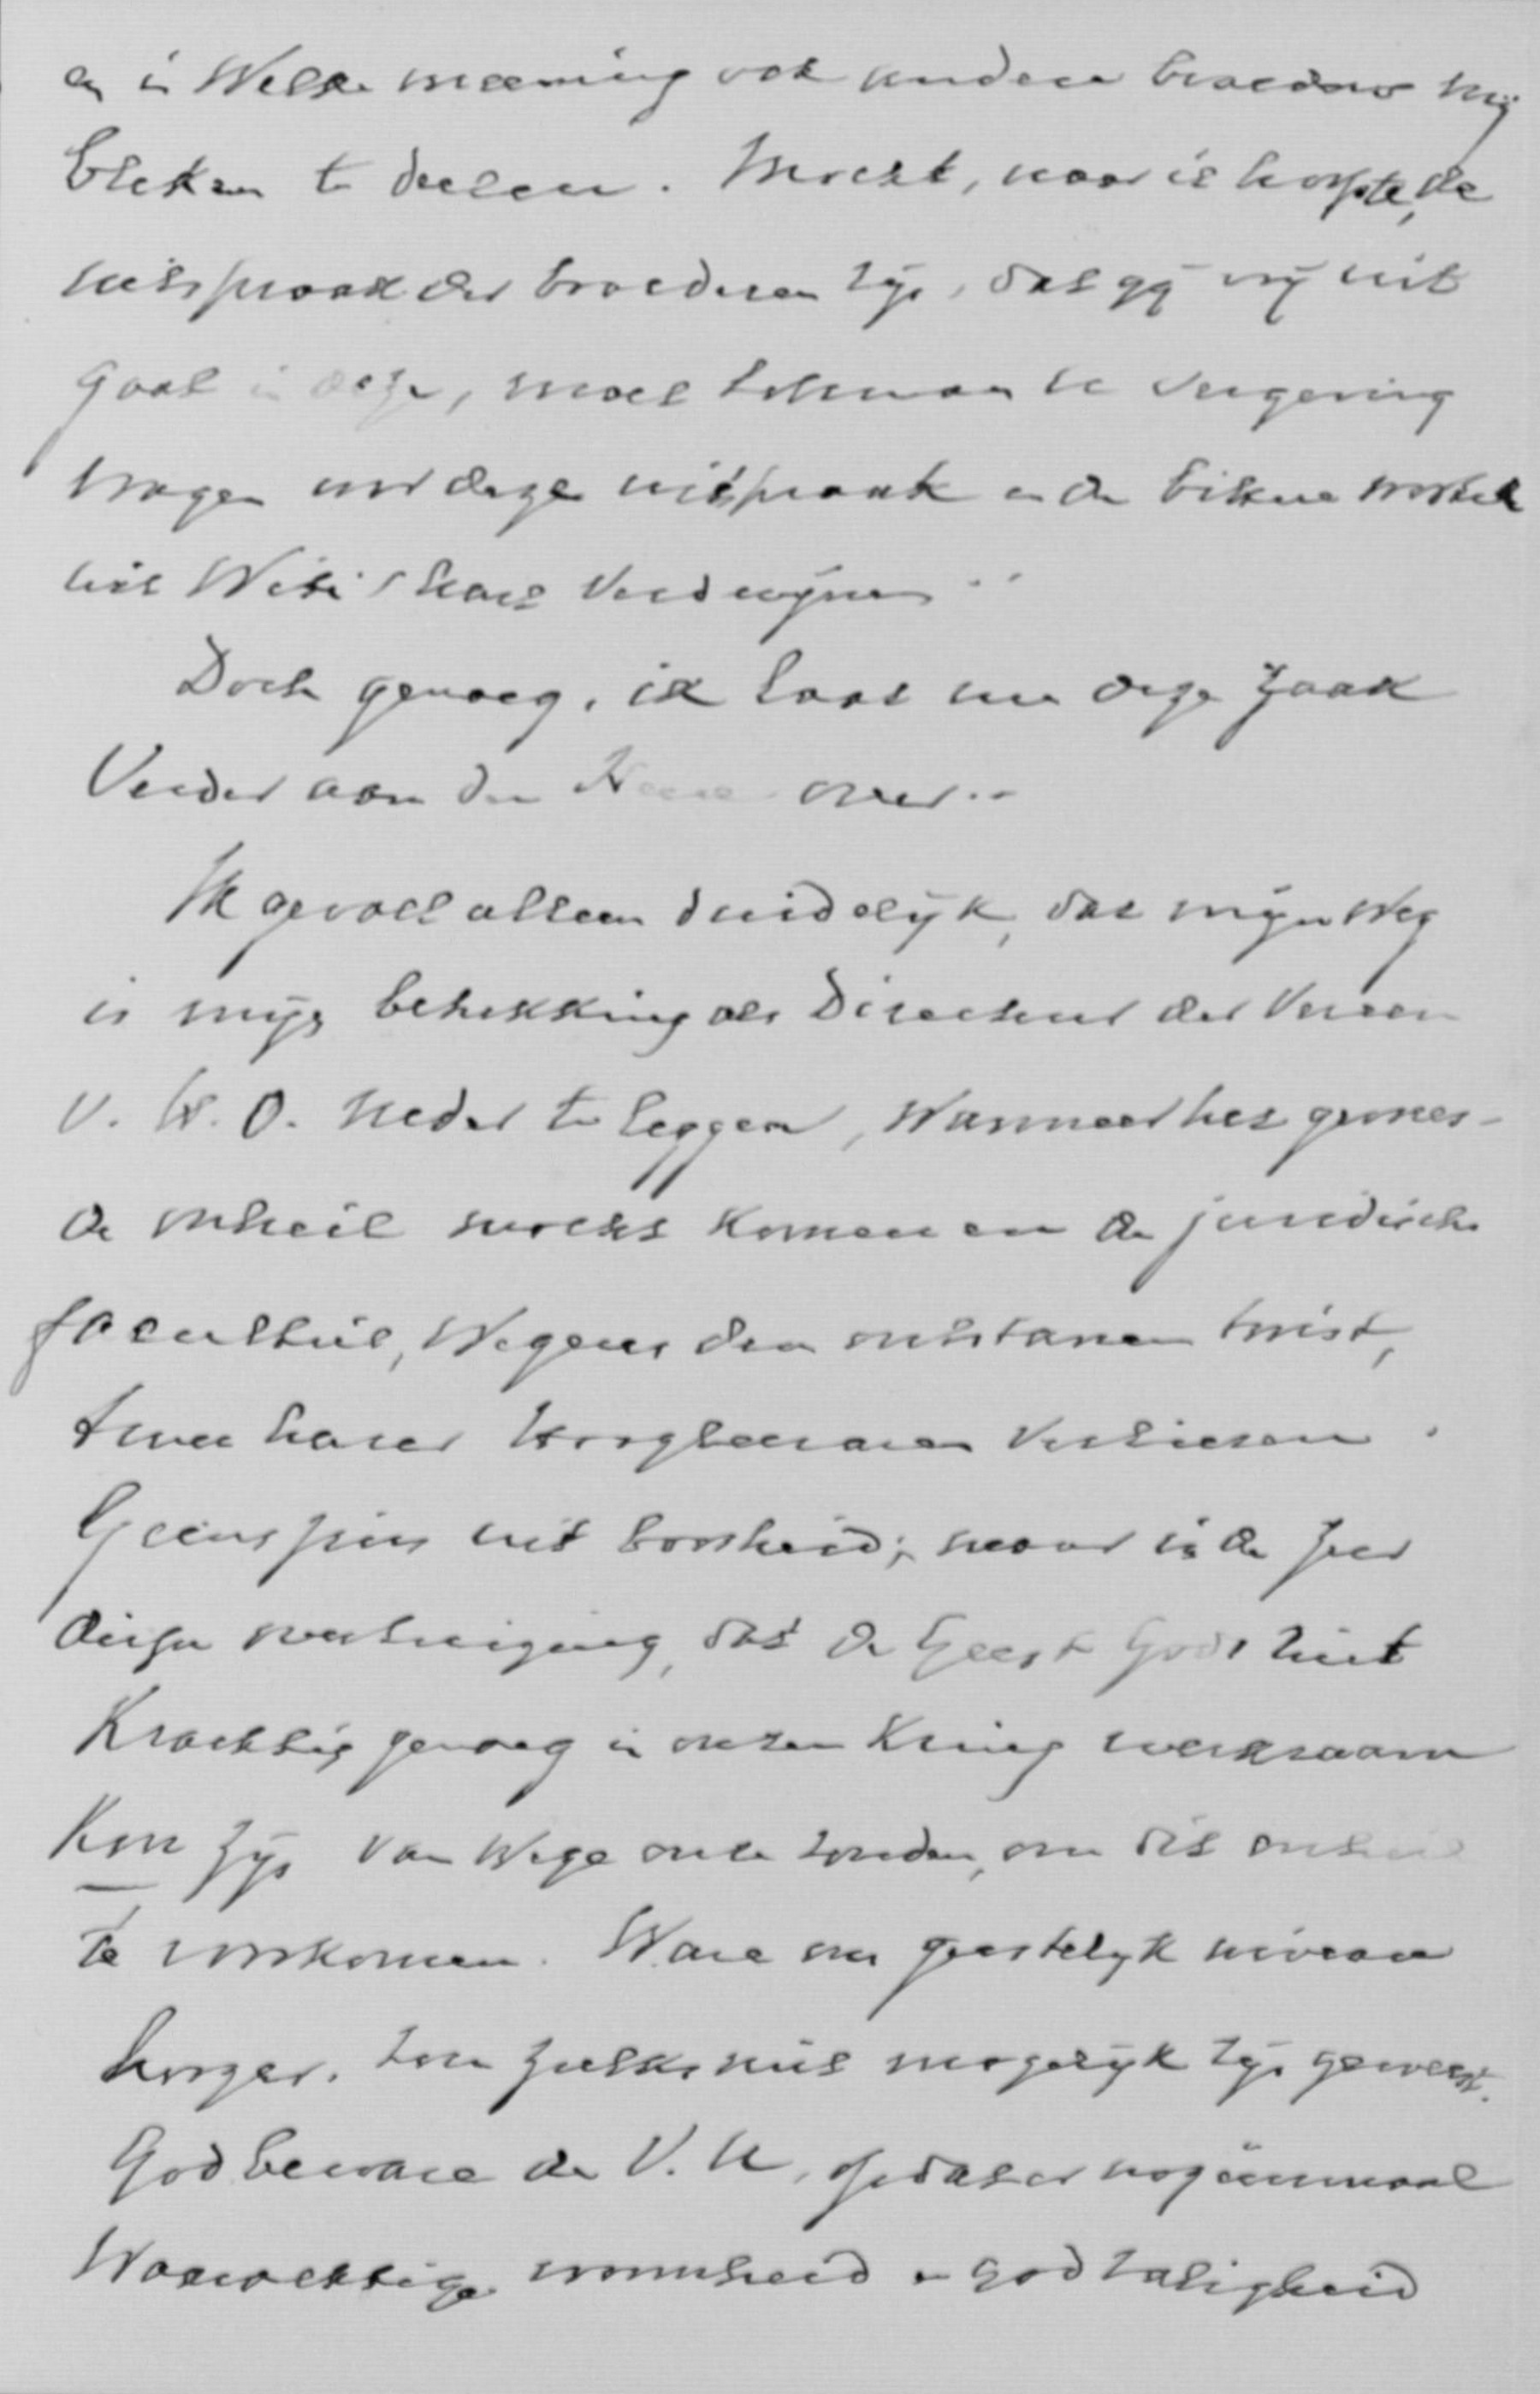 en in Welke meening ook andere broeders mij
bleken te deelen. Mocht, naar ik hoopte, de
uitspraak der broederen zijn, dat gij vrij uit
gaat in deze, moet Lohman U vergeving
vragen voor deze uitspraak en de bittere wortel
uit Uw hart verdwijnen
Doch genoeg, ik laat nu deze zaak
Verder aan den Heere over.
Ik gevoel alleen duidelijk, dat mijn Weg
is mijn betrekking als Directeur der Vereen
v. H. O. neder te leggen, Wanneer het gevrees-
de onheil mocht komen en de juridische
faculteit, Wegens den ontstanen twist,
twee harer hoogleeraren verliezen.
Geenszins uit boosheid; maar in de zeer
diepe overtuiging, dat de Geest Gods niet
Krachtig genoeg in onzen Kring werkzaam
Kon zijn Van Wege onze zonden, om dit onheil
te voorkomen. Ware ons geestelijk niveau
hooger, zou zulks niet mogelijk zijn geweest.
God beware de V. U, opdat er nog éénmaal
Waarachtige vroomheid en godzaligheid